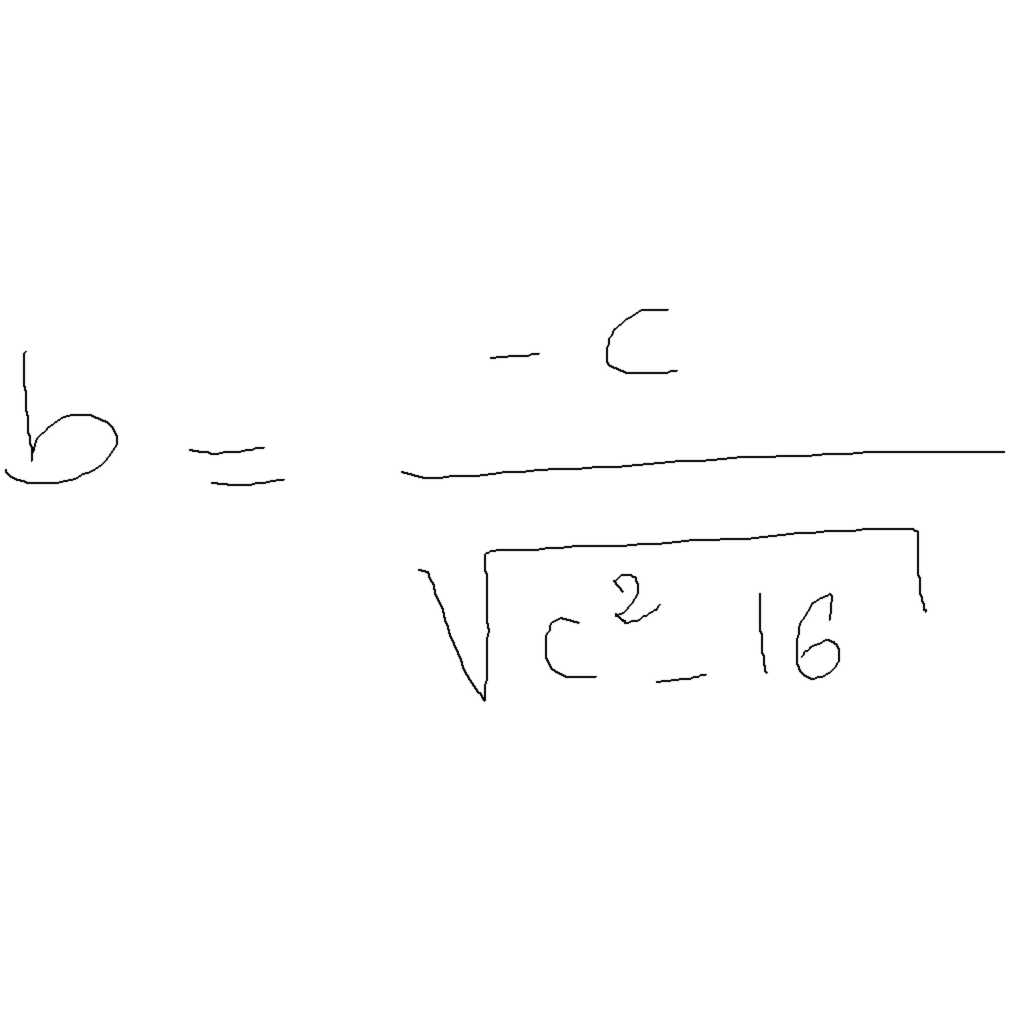 b = \frac{-c}{\sqrt{c^2 - 16}}